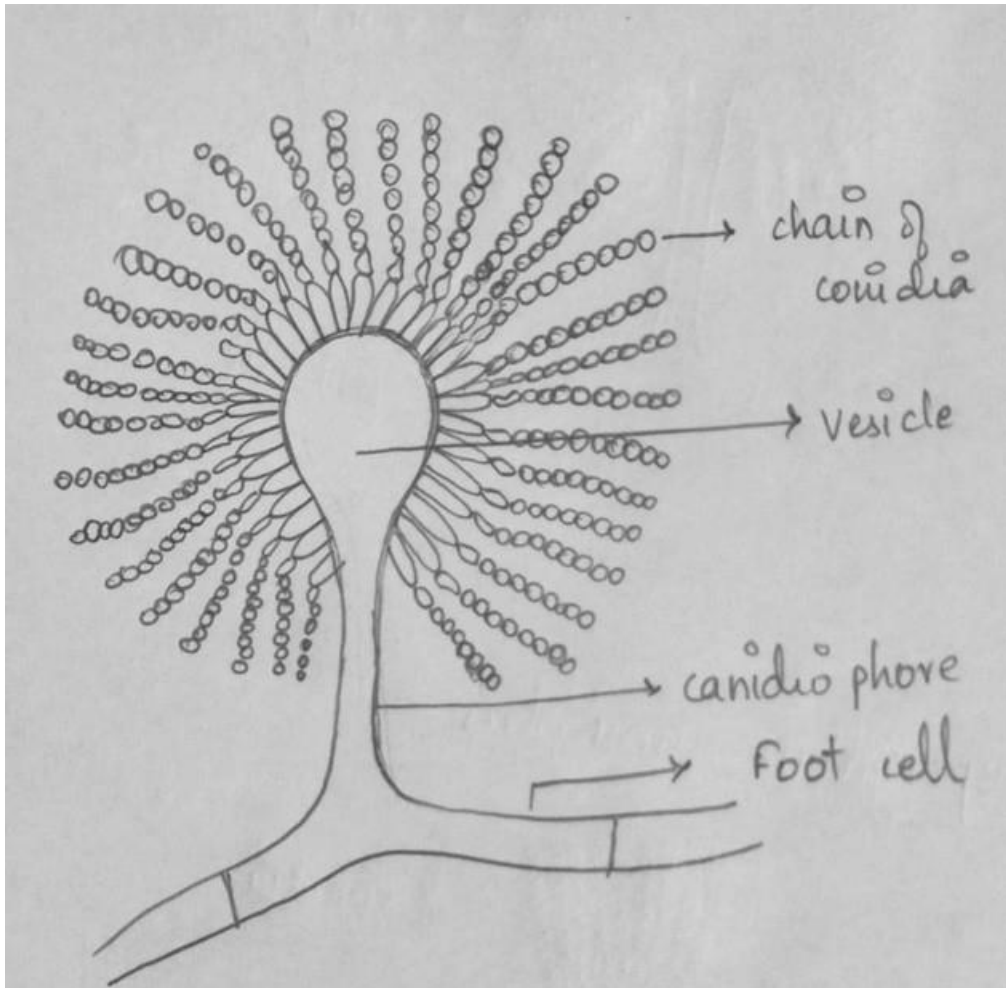 chain of
conidia
vesicle
canidio phore
Foot cell